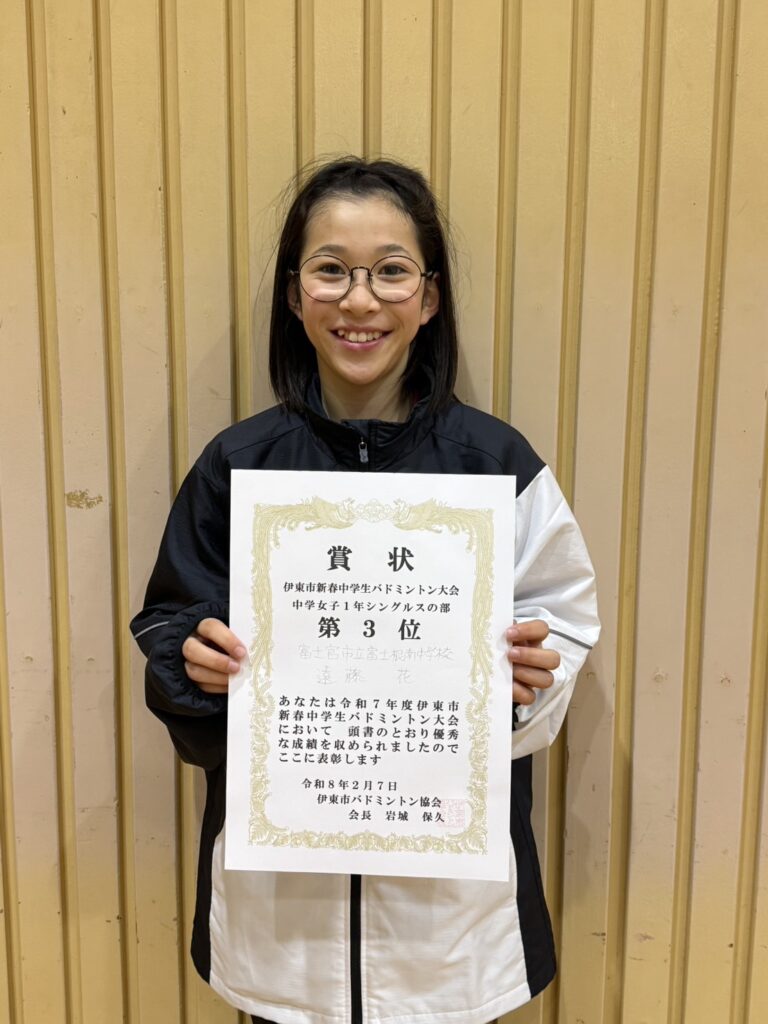 賞状
伊東市新春中学生バドミントン大会
中学女子1年シングルスの部
第3位
富士宮市立富士根南中学校
遠藤 花
あなたは令和7年度伊東市
新春中学生バドミントン大会
において 頭書のとおり優秀
な成績を収められましたので
ここに表彰します
令和8年2月7日
伊東市バドミントン協会
会長 岩城 保久